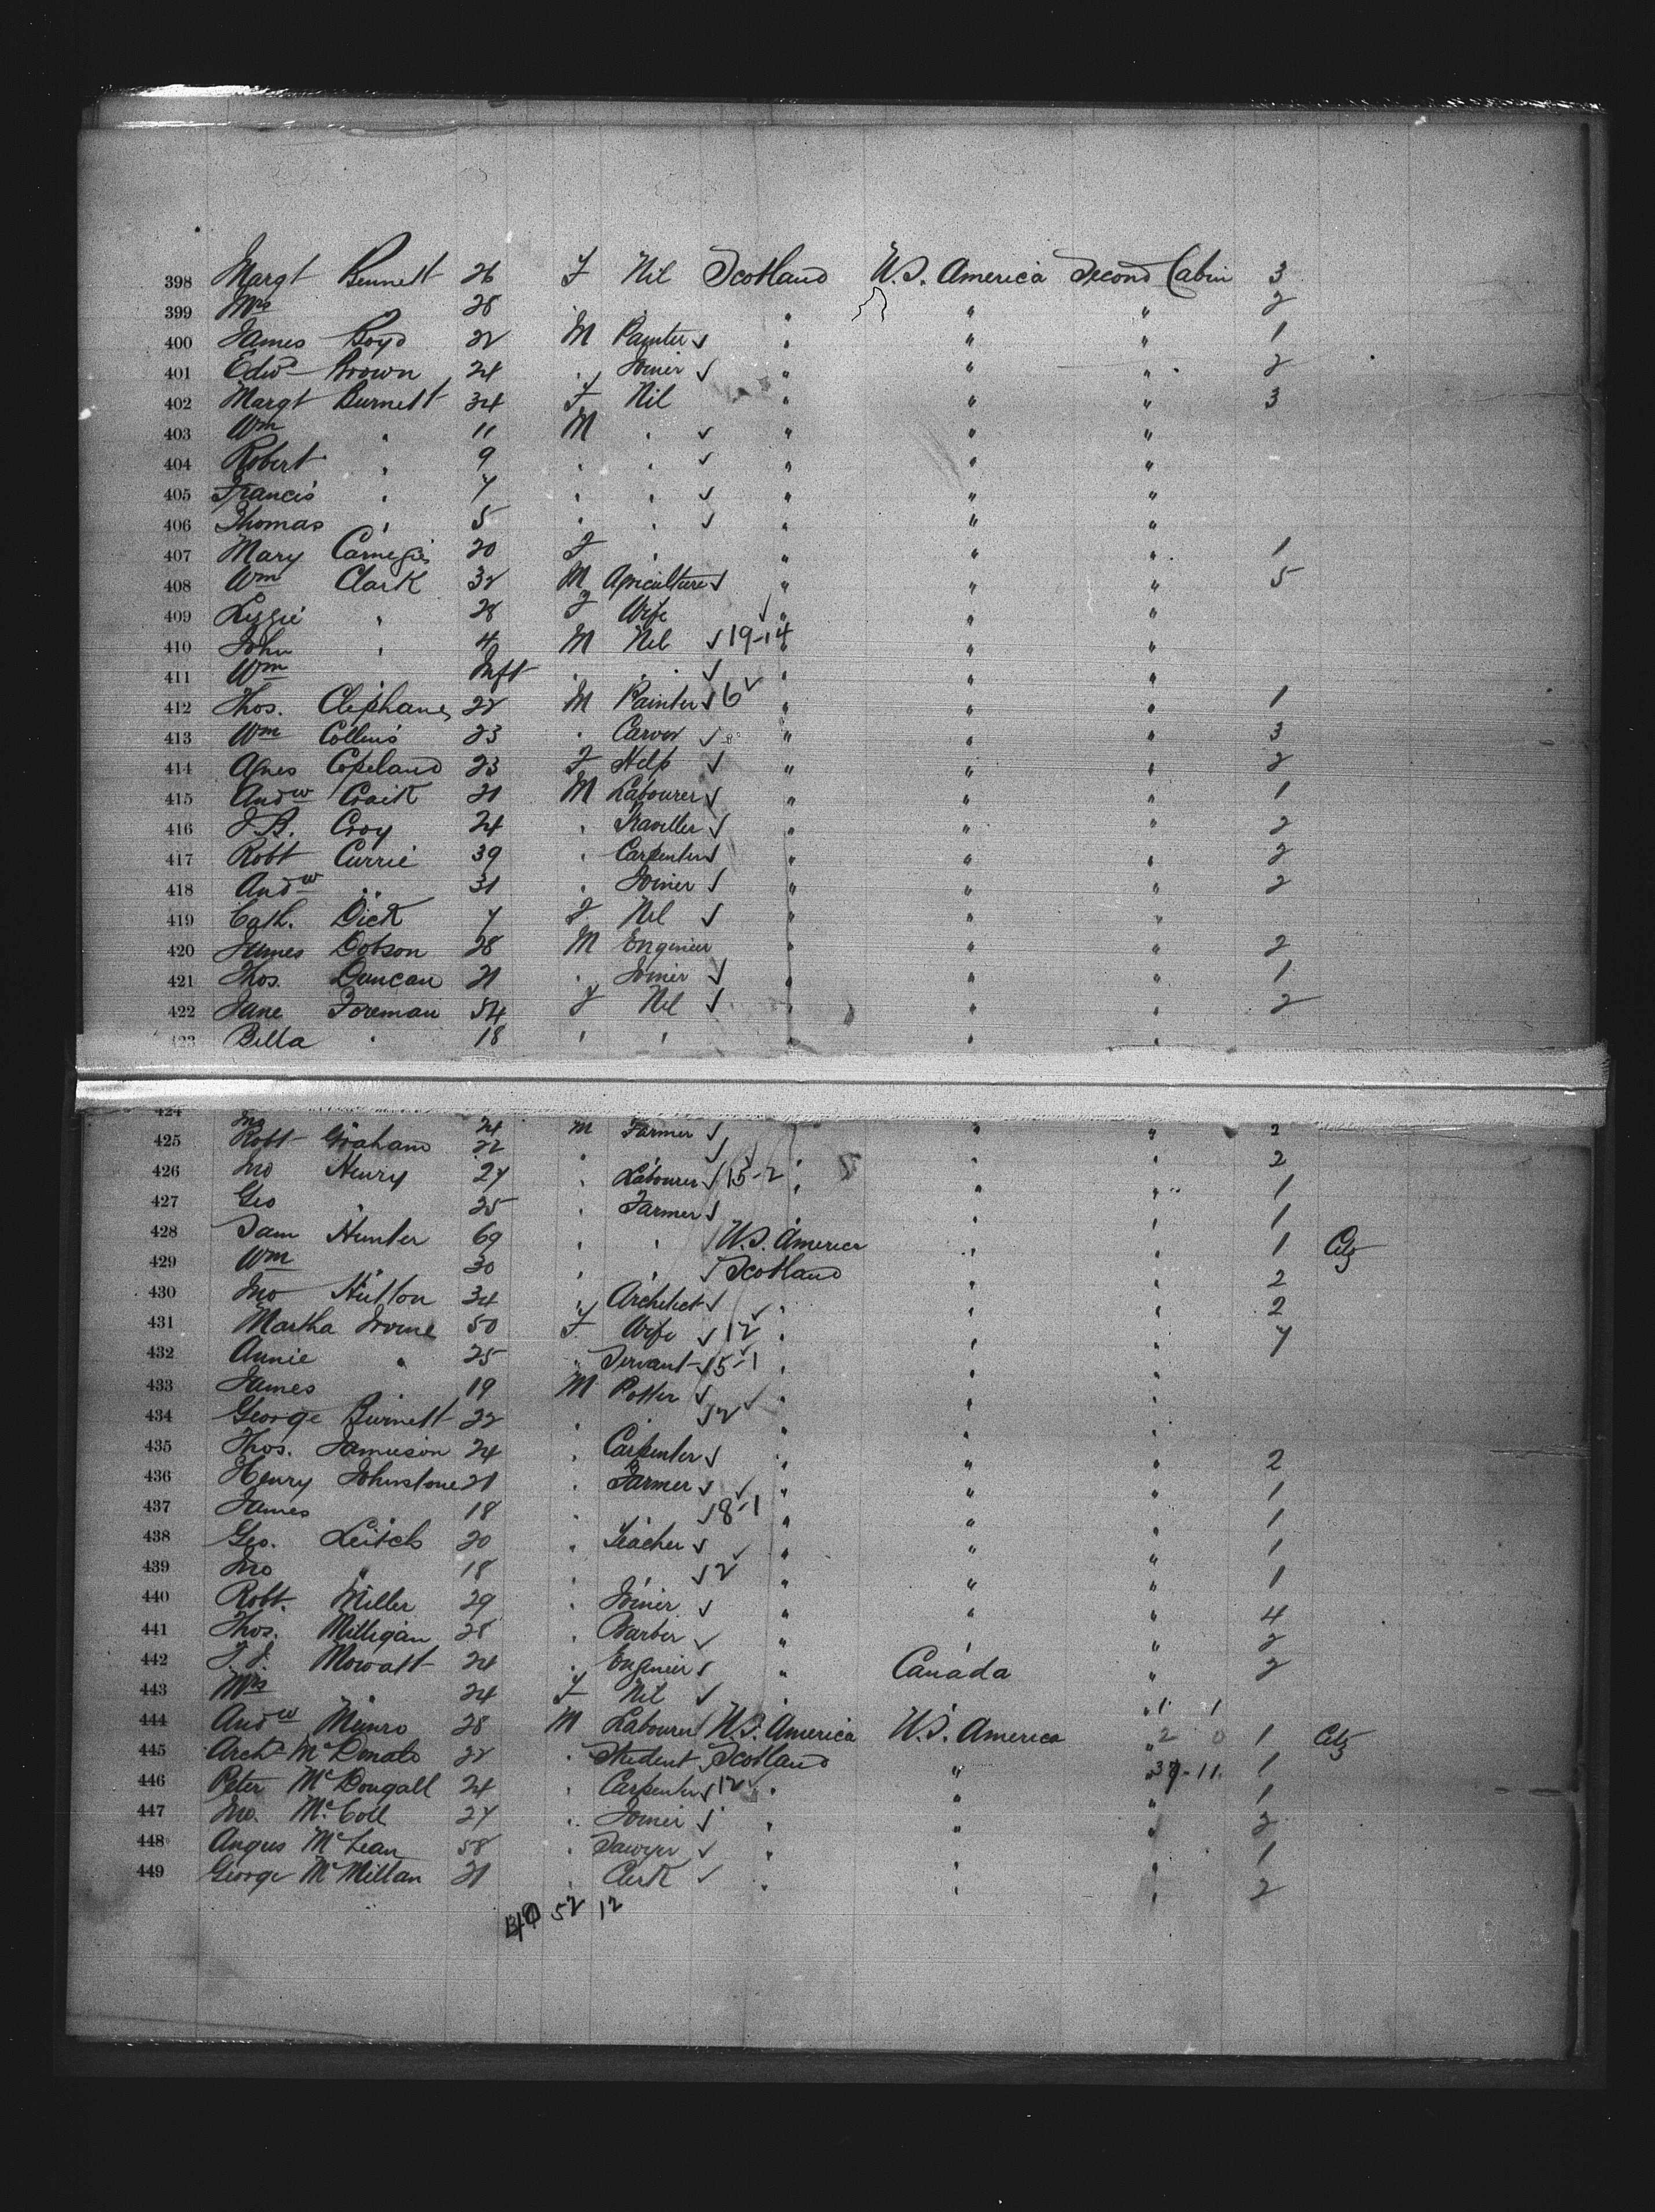 398 Margt Bennett 26 F Nil Scotland U.S. America Second Cabin 3
399 Mrs " 28 " " " " " 2
400 James Boyd 22 M Painter " " " 1
401 Edwd Brown 24 " Joiner " " " 2
402 Margt Burnett 34 F Nil " " " 3
403 Wm " 11 M " " " "
404 Robert " 9 " " " " "
405 Francis " 7 " " " " "
406 Thomas " 5 " " " " "
407 Mary Carnegie 20 F " " " " 1
408 Wm Clark 32 M Agriculture " " " 5
409 Lizzie " 28 F Wife " " "
410 John " 4 M Nil 19-14 " " "
411 Wm " Inft " " " " "
412 Thos. Clephane 22 M Painter 6 " " " 1
413 Wm Collins 23 " Carver " " " 3
414 Agnes Copeland 23 F Help " " " 2
415 Andw Craik 21 M Labourer " " " 1
416 J.A. Croy 24 " Traveller " " " 2
417 Robt Currie 39 " Carpenter " " " 2
418 Andw " 31 " Joiner " " " 2
419 Cath. Dick 7 F Nil " " "
420 James Dobson 28 M Engineer " " " 2
421 Thos. Duncan 21 " Joiner " " " 1
422 Jane Foreman 54 F Nil " " " 2
423 Bella " 18 " " " " "
424 Jno 24 M Farmer " " " 2
425 Robt Graham 22 " " " " " 2
426 Jno Henry 27 " Labourer 15-2 " " " 1
427 Geo " 25 " Farmer " " " 1
428 Sam Hunter 69 " " U.S. America " " 1 Citz
429 Wm " 30 " " Scotland " " 2
430 Jno Hutton 34 " Architect " " " 2
431 Martha Irvine 50 F Wife 12 " " " 7
432 Annie " 25 " Servant 15-1 " " "
433 James " 19 M Potter " " "
434 George Burnett 22 " " 12 " " "
435 Thos. Jamieson 24 " Carpenter " " " 2
436 Henry Johnstone 21 " Farmer " " " 1
437 James " 18 " " 18-1 " " " 1
438 Geo. Leitch 20 " Teacher " " " 1
439 Jno " 18 " " 12 " " " 1
440 Robt. Miller 29 " Joiner " " " 4
441 Thos. Milligan 28 " Barber " " " 2
442 Mowatt 24 " Engineer " Canada " 2
443 Mrs " 24 F Nil " " " 1 1
444 Andw Munro 28 M Labourer U.S. America U.S. America " 2 0 1 Citz
445 Archd McDonald 22 " Student Scotland " " 39-11 1
446 Peter McDougall 24 " Carpenter 12 " " " 1
447 Jno. McColl 27 " Joiner " " " 2
448 Angus McLean 58 " Sawyer " " " 1
449 George McMillan 21 " Clerk " " " 2
52 12